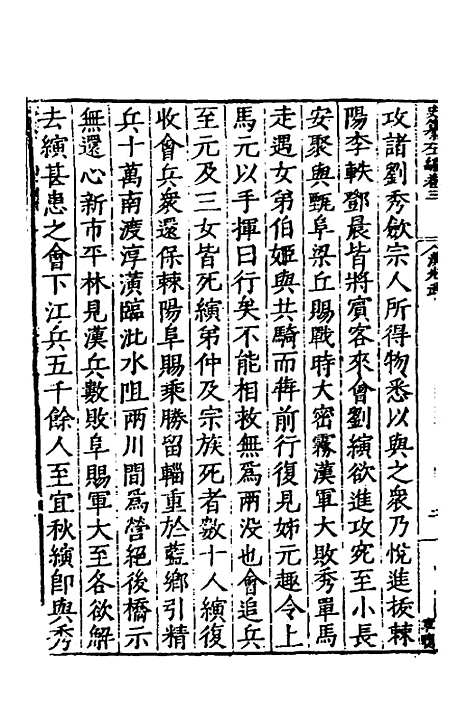 攻諸劉秀歛宗人所得物悉以與之衆乃悅進拔棘
陽李軼鄧晨皆將賓客來會劉縯欲進攻宛至小長
安聚與甄阜梁丘賜戰時大密霧漢軍大敗秀單馬
走遇女弟伯姬與共騎而犇前行復見姊元趣令上
馬元以手揮曰行矣不能相救無爲兩没也會追兵
至元及三女皆死縯弟仲及宗族死者數十人縯復
收會兵衆還保棘陽阜賜乘勝留輜重於藍鄉引精
兵十萬南渡淳潢臨沘水阻兩川間爲營絕後橋示
無還心新市平林見漢兵數敗阜賜軍大至各欲解
去縯甚患之會下江兵五千餘人至宜秋縯卽與秀